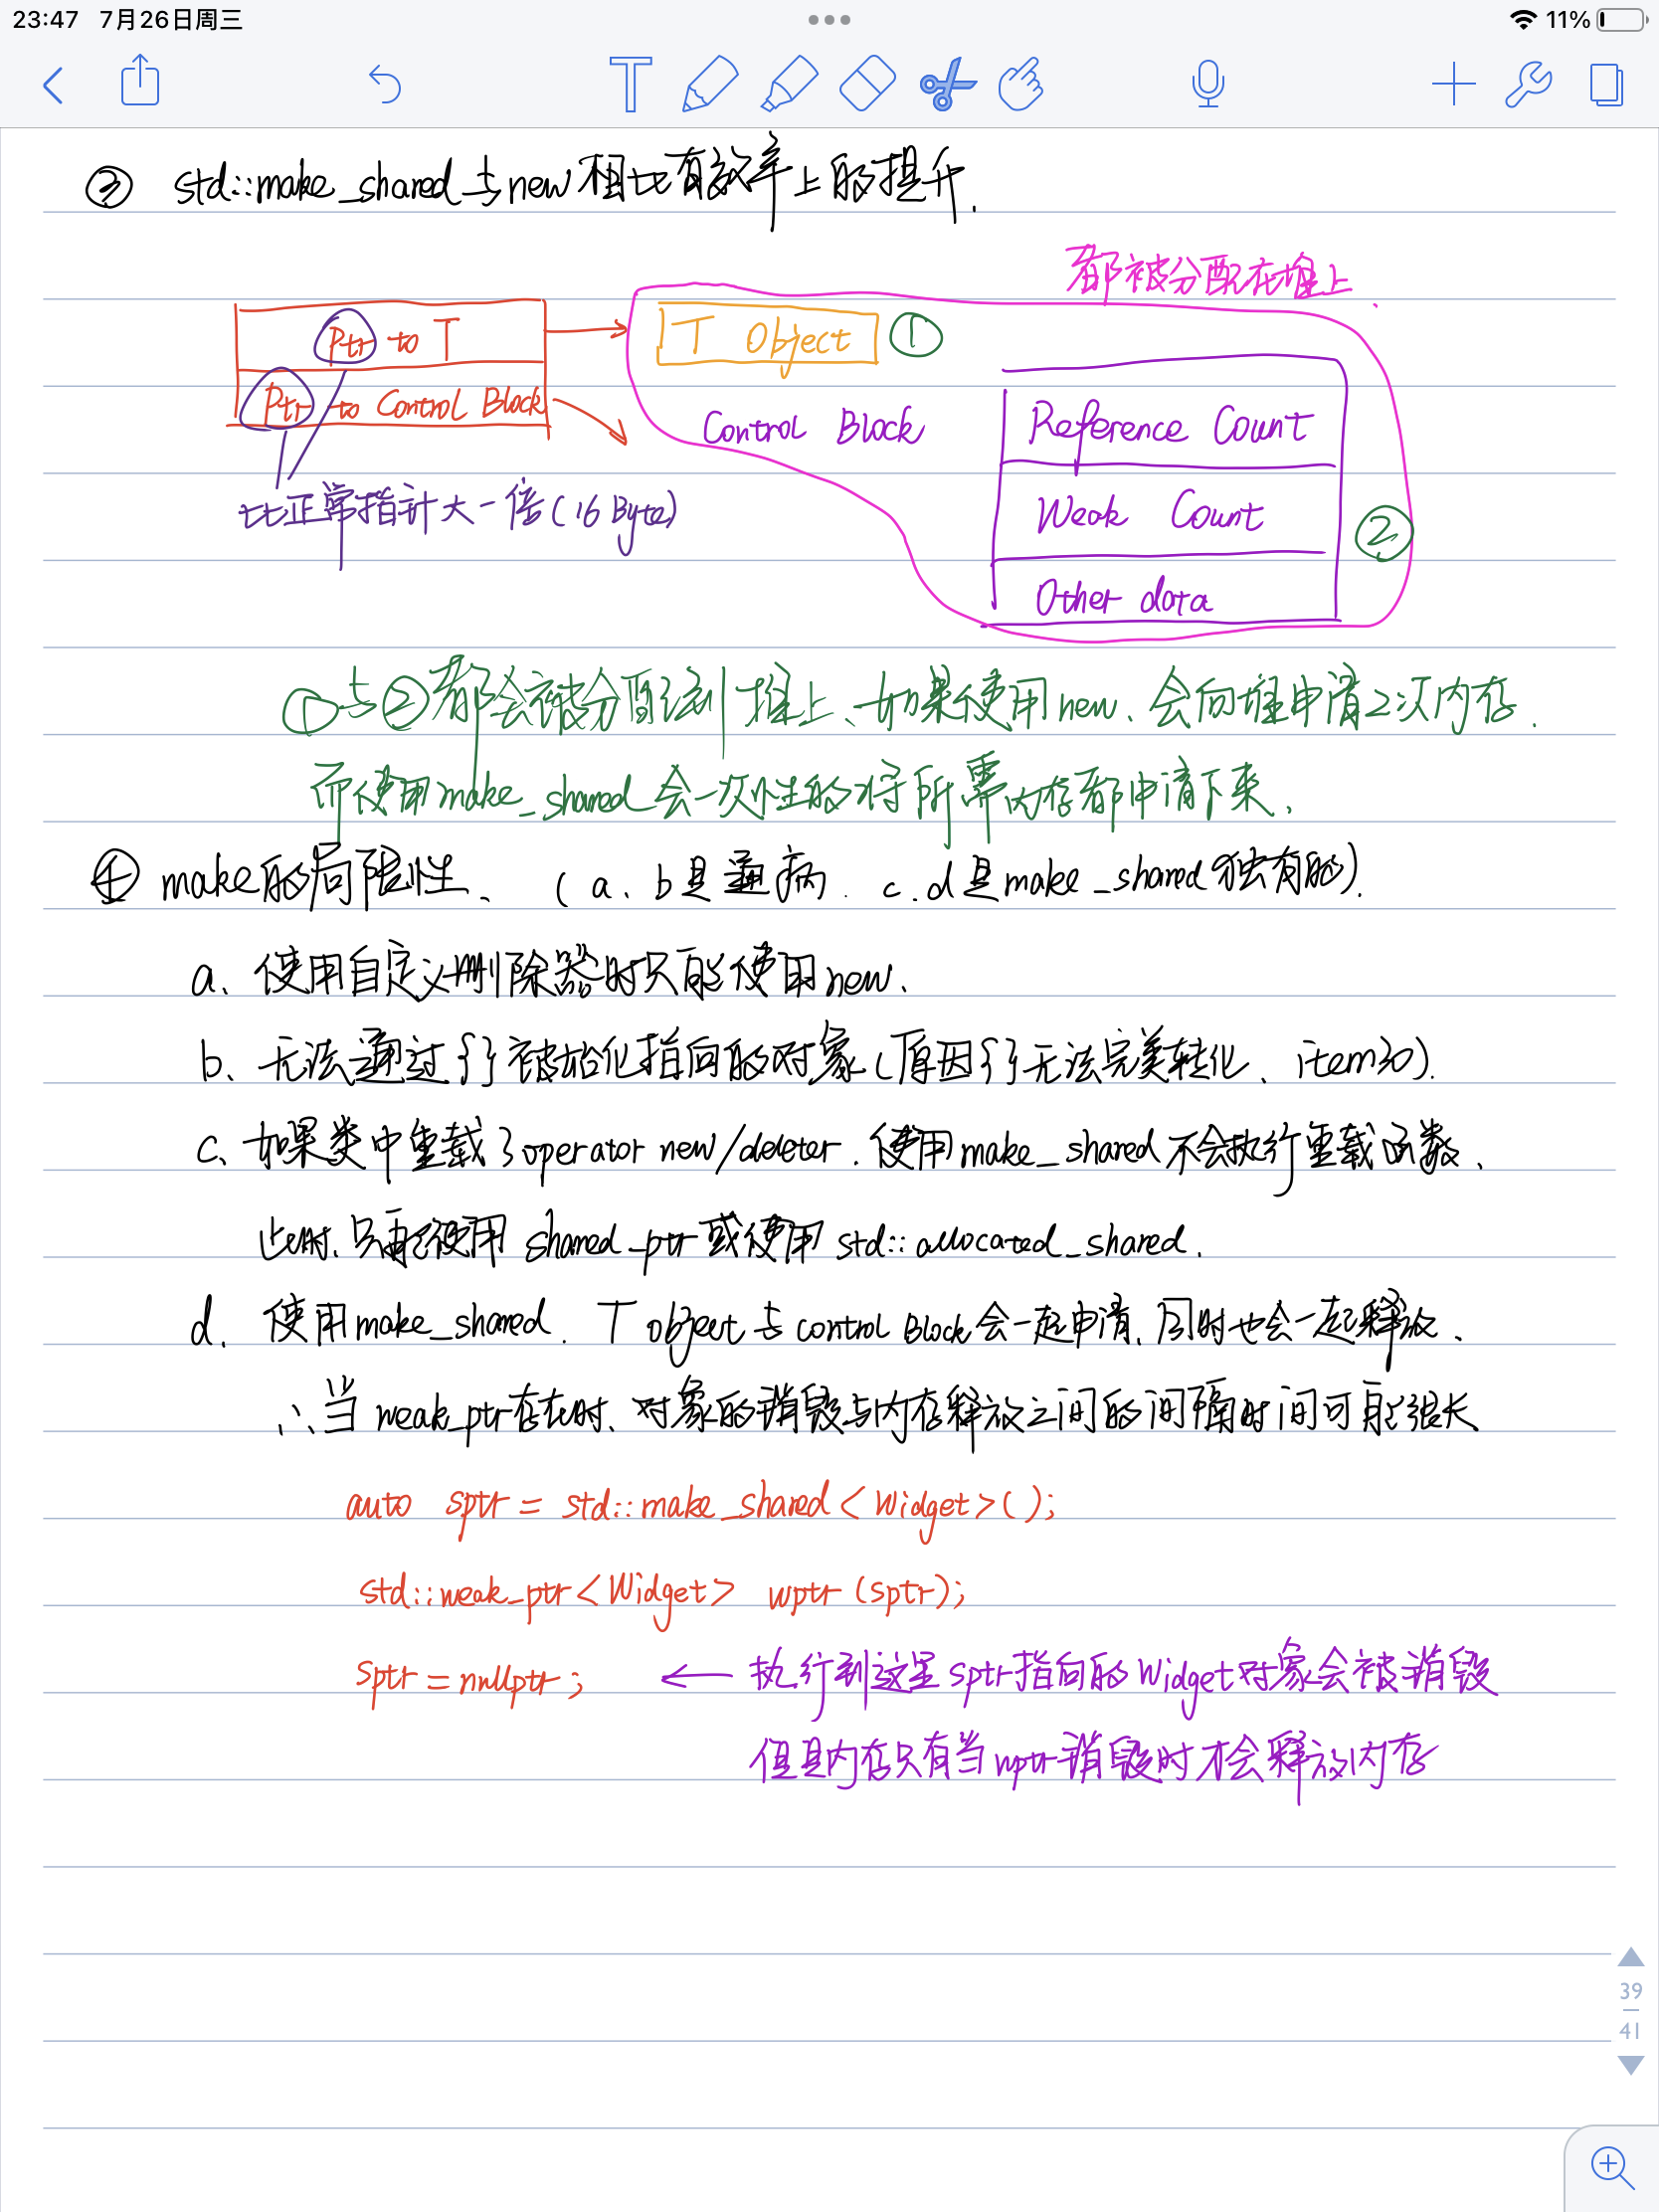 23:47 7月26日周三 11%
③ std::make_shared与new相比有效率上的提升.
都被分配在堆上.
Ptr to T
T Object ①
Ptr to Control Block
Control Block
Reference Count
Weak Count
②
Other data
比正常指针大一倍(16 Byte)
①与②都会被分配到堆上、如果使用new、会向堆申请2次内存.
而使用make_shared会一次性的将所需内存都申请下来.
④ make的局限性、(a、b是通病. c.d是make_shared独有的).
a、使用自定义删除器时只能使用new、
b、无法通过{}初始化指向的对象(原因{}无法完美转化、item30).
c、如果类中重载了operator new/deleter.使用make_shared不会执行重载函数、
此时、只能使用 shared_ptr或使用 std::allocated_shared.
d. 使用make_shared. T object与control Block会一起申请、同时也会一起释放.
∴当weak_ptr存在时、对象的销毁与内存释放之间的间隔时间可能很长
auto sptr = std::make_shared<Widget>();
std::weak_ptr<Widget> wptr(sptr);
sptr = nullptr; ← 执行到这里sptr指向的Widget对象会被销毁
但是内存只有当wptr销毁时才会释放内存
39
41